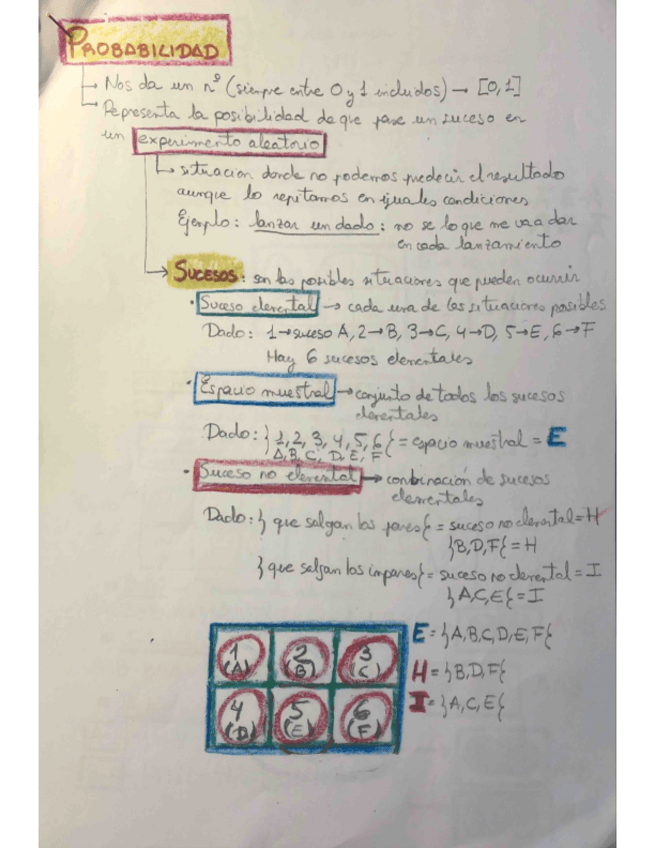 PROBABILIDAD
Nos da un nº (siempre entre 0 y 1 incluidos) → [0,1]
Representa la posibilidad de que pase un suceso en
un experimento aleatorio
situación donde no podemos predecir el resultado
aunque lo repitamos en iguales condiciones
Ejemplo: lanzar un dado: no se lo que me va a dar
en cada lanzamiento
SUCESOS: son las posibles situaciones que pueden ocurrir
· Suceso elemental → cada una de las situaciones posibles
Dado: 1→suceso A, 2→B, 3→C, 4→D, 5→E, 6→F
Hay 6 sucesos elementales
· Espacio muestral → conjunto de todos los sucesos
elementales
Dado: }1, 2, 3, 4, 5, 6{ = espacio muestral = E
A, B, C, D, E, F
· Suceso no elemental → combinación de sucesos
elementales
Dado: } que salgan los pares{ = suceso no elemental = H
}B,D,F{ = H
} que salgan los impares{ = suceso no elemental = I
}A,C,E{ = I
1 2 3
(A) (B) (C)
4 5 6
(D) (E) (F)
E = }A,B,C,D,E,F{
H = }B,D,F{
I = }A,C,E{